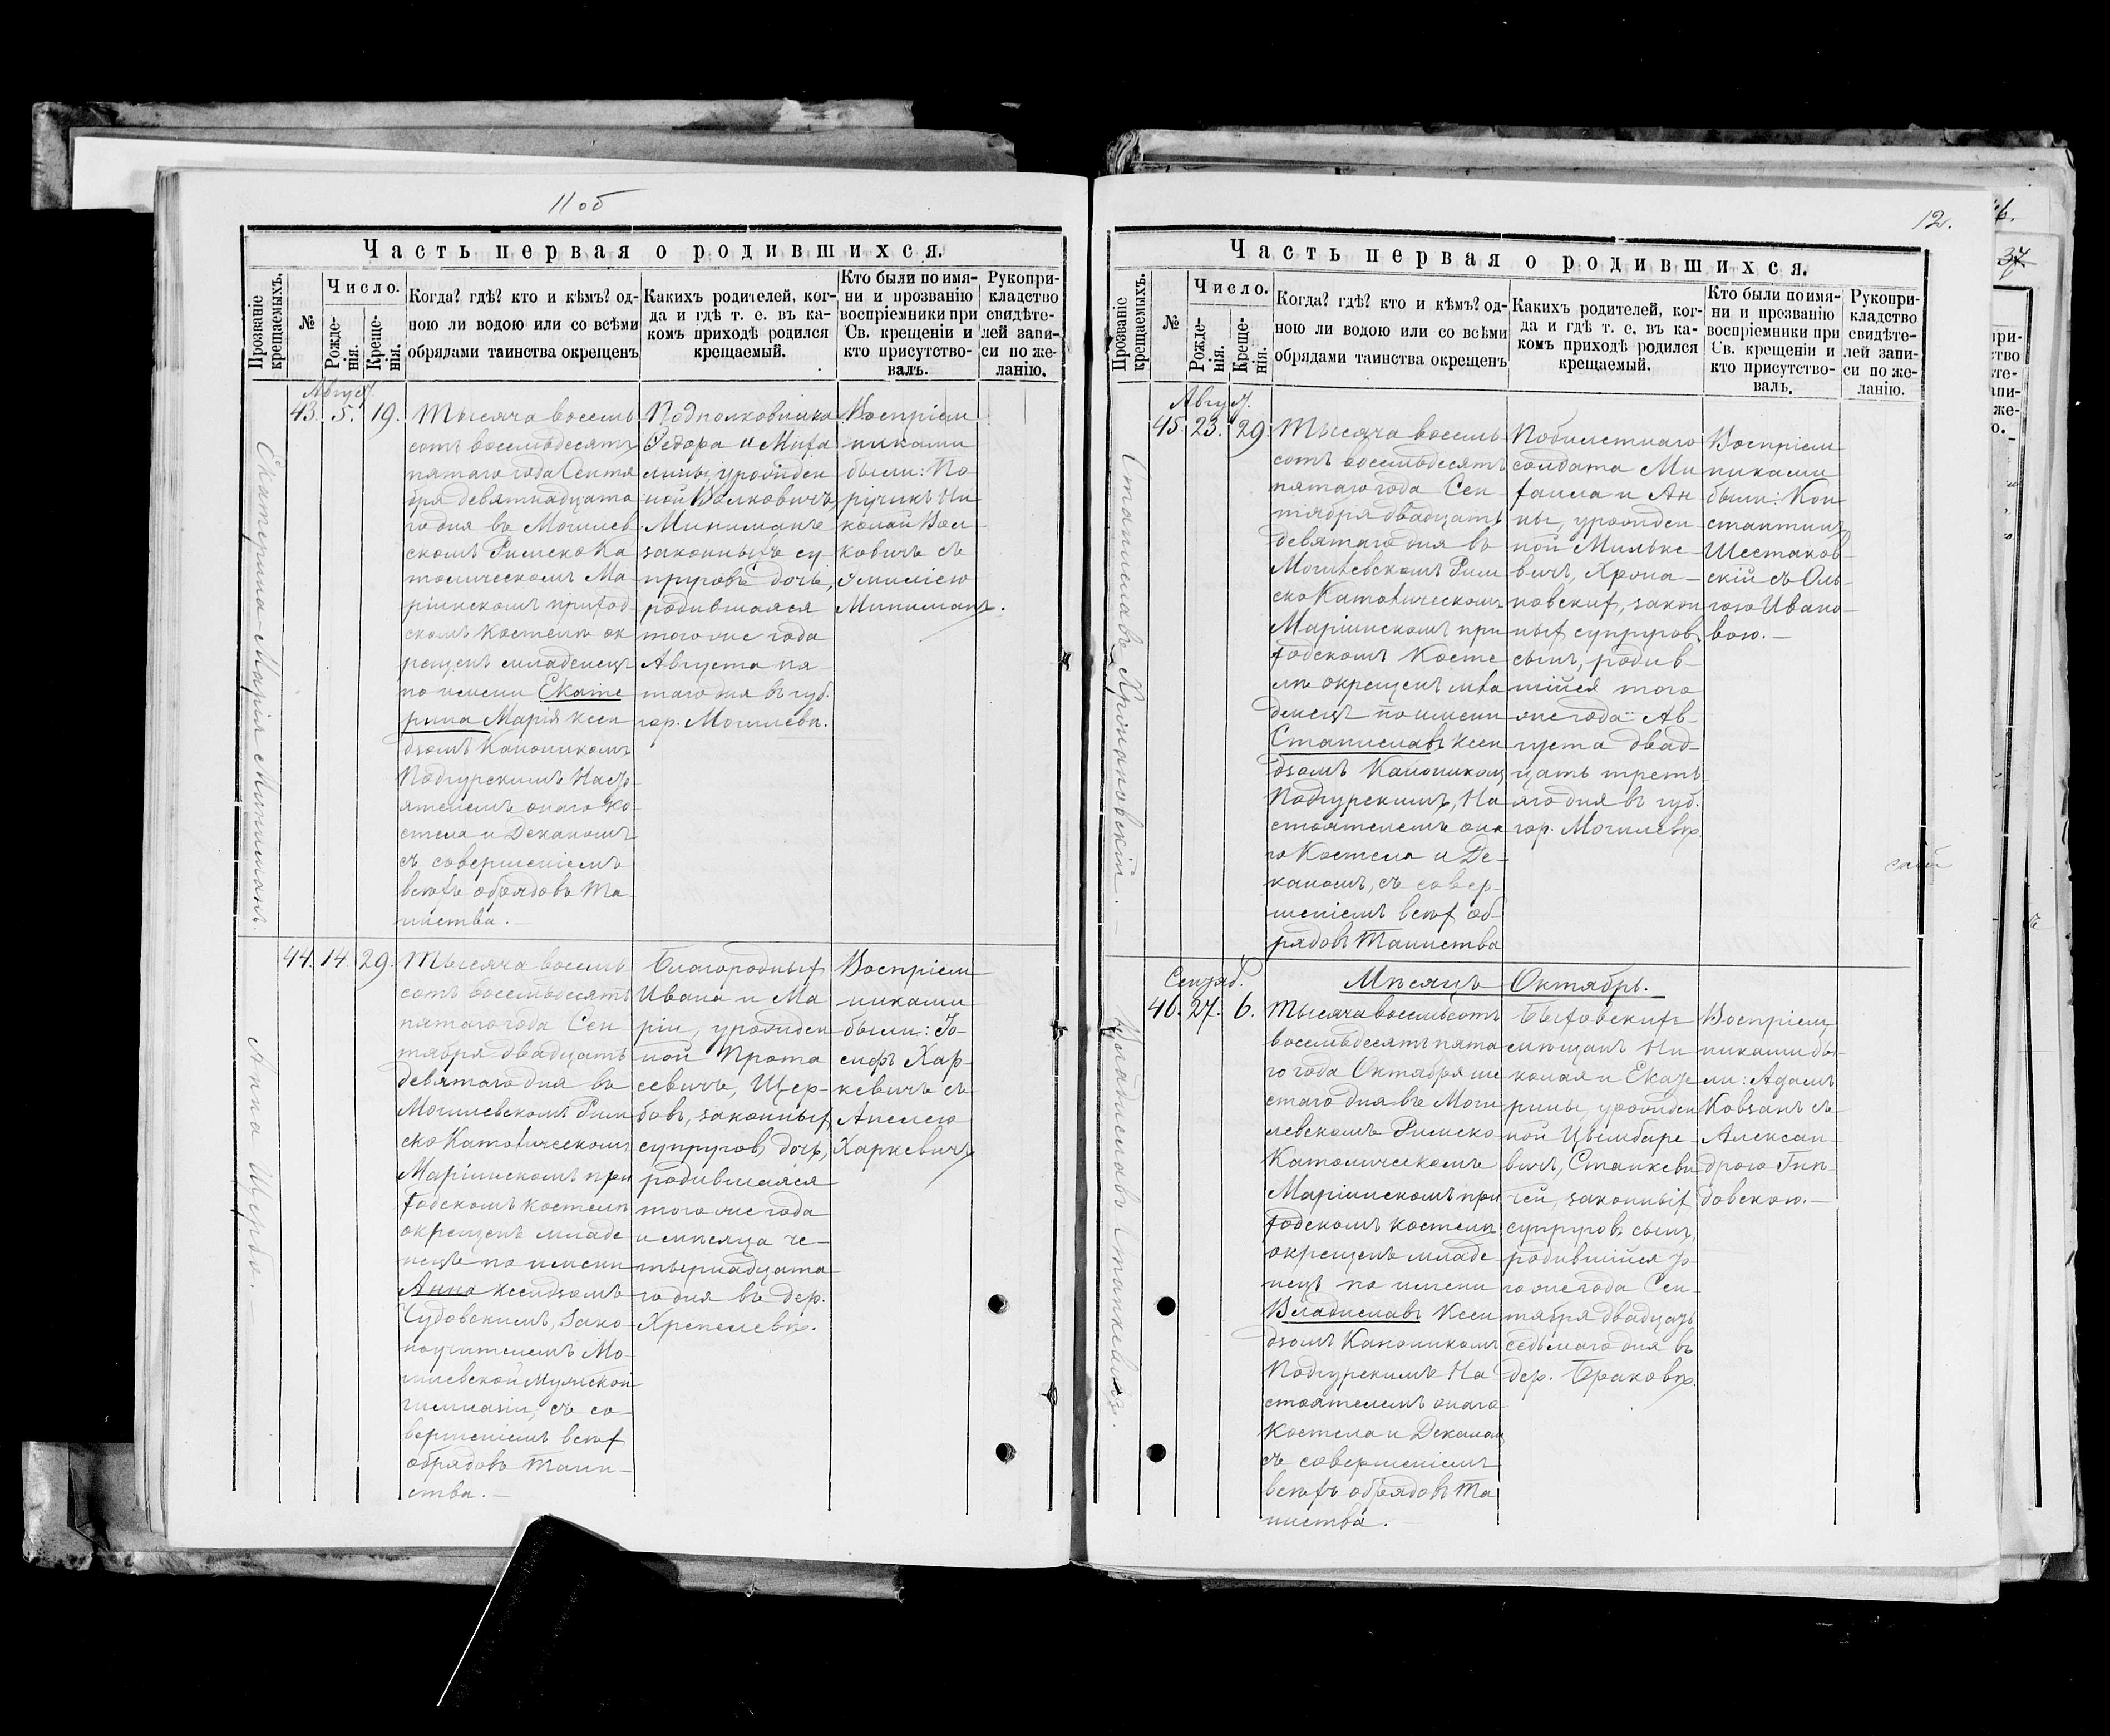 11 об
Часть первая о родившихся.
Прозваніе крещаемыхъ.
№
Число.
Рожде-
нія.
Креще-
нія.
Когда? гдѣ? кто и кѣмъ? од-
ною ли водою или со всѣми
обрядами таинства окрещенъ
Какихъ родителей, ког-
да и гдѣ т. е. въ ка-
комъ приходѣ родился
крещаемый.
Кто были по имя-
ни и прозванію
воспріемники при
Св. крещеніи и
кто присутство-
валъ.
Рукопри-
кладство
свидѣте-
лей запи-
си по же-
ланію.
Август.
Екатерина-Марія Миниманъ.
43. 5. 19.
Тысяча восемь
сотъ восемьдесятъ
пятаго года Сентя
бря девятнадцата
го дня въ Могилев
скомъ Римско Ка
толическомъ Ма-
ріинскомъ приход
скомъ Костелѣ ок
рещенъ младенецъ
по имени Екате
рина Марія ксен
дзомъ Каноникомъ
Подгурскимъ Насто
ятелемъ онаго Ко-
стела и Деканомъ
съ совершеніемъ
всѣхъ обрядовъ Та-
инства. —
Подполковника
Федора и Миха
лины, урожден
ной Волковичъ,
Минимановъ
законныхъ су-
пруговъ дочь,
родившаяся
того же года
Августа пя-
таго дня въ губ.
гор. Могилевѣ.
Воспріем
никами
были: По
ручикъ Ни
колай Вол-
ковичъ съ
Эмиліею
Миниманъ.
Анна Щерба.
44. 14. 29.
Тысяча восемь
сотъ восемьдесятъ
пятаго года Сен-
тября двадцать
девятаго дня въ
Могилевскомъ Рим
ско Католическомъ
Маріинскомъ при
ходскомъ костелѣ
окрещенъ младе
нецъ по имени
Анна ксендзомъ
Чудовскимъ, Зако-
ноучителемъ Мо-
гилевской Мужской
гимназіи, съ со-
вершеніемъ всѣх
обрядовъ Таин-
ства. —
Благородных
Ивана и Ма
ріи, урожден
ной Прота
севичъ, Щер-
бовъ, законных
супругов, дочь,
родившаяся
того же года
и мѣсяца че-
тырнадцата
го дня въ дер.
Хрепелевѣ.
Воспріем
никами
были: Іо-
сифъ Хар-
кевичъ съ
Анелею
Харкевичъ
12.
Часть первая о родившихся.
Прозваніе крещаемыхъ.
№
Число.
Рожде-
нія.
Креще-
нія.
Когда? гдѣ? кто и кѣмъ? од-
ною ли водою или со всѣми
обрядами таинства окрещенъ
Какихъ родителей, ког-
да и гдѣ т. е. въ ка-
комъ приходѣ родился
крещаемый.
Кто были по имя-
ни и прозванію
воспріемники при
Св. крещеніи и
кто присутство-
валъ.
Рукопри-
кладство
свидѣте-
лей запи-
си по же-
ланію.
Август.
Станиславъ Хроновскій. —
45. 23. 29.
Тысяча восемь
сотъ восемьдесятъ
пятаго года Сен-
тября двадцать
девятаго дня въ
Могилевскомъ Рим
ско Католическомъ
Маріинскомъ при
ходскомъ Косте
лѣ окрещенъ мла
денецъ по имени
Станиславъ ксен
дзомъ Каноникомъ
Подгурскимъ, На
стоятелемъ она
го Костела и Де-
каномъ, съ совер-
шеніемъ всѣх об-
рядовъ Таинства
Побилетнаго
солдата Ми
хаила и Ан
ны, урожден
ной Мильке-
вичъ, Хрона-
новских, закон
ных супругов,
сынъ, родив-
шійся того
же года Ав-
густа двад-
цать треть
яго дня въ губ.
гор. Могилевѣ
Воспріем
никами
были: Кон
стантинъ
Шестаков-
скій съ Оль-
гою Ивано-
вою. —
Сентяб.
Мѣсяцъ Октябрь.
Владиславъ Станкевичъ.
46. 27. 6.
Тысяча восемьсотъ
восемьдесятъ пята
го года Октября ше
стаго дня въ Моги
левскомъ Римско
Католическомъ
Маріинскомъ при
ходскомъ костелѣ
окрещенъ младе
нецъ по имени
Владиславъ Ксен
дзомъ Каноникомъ
Подгурскимъ На
стоятелемъ онаго
Костела и Деканом
съ совершеніемъ
всѣхъ обрядовъ Та
инства. —
Быховскихъ
мѣщанъ Ни
колая и Екате
рины, урожден
ной Цымбаре-
вичъ, Станкеви
чей, законных
супругов, сынъ,
родившійся то-
го же года Сен-
тября двадцать
седьмаго дня въ
дер. Браковѣ.
Воспріем
никами бы-
ли: Адамъ
Ковзанъ съ
Алексан-
дрою Гин-
довскою. —